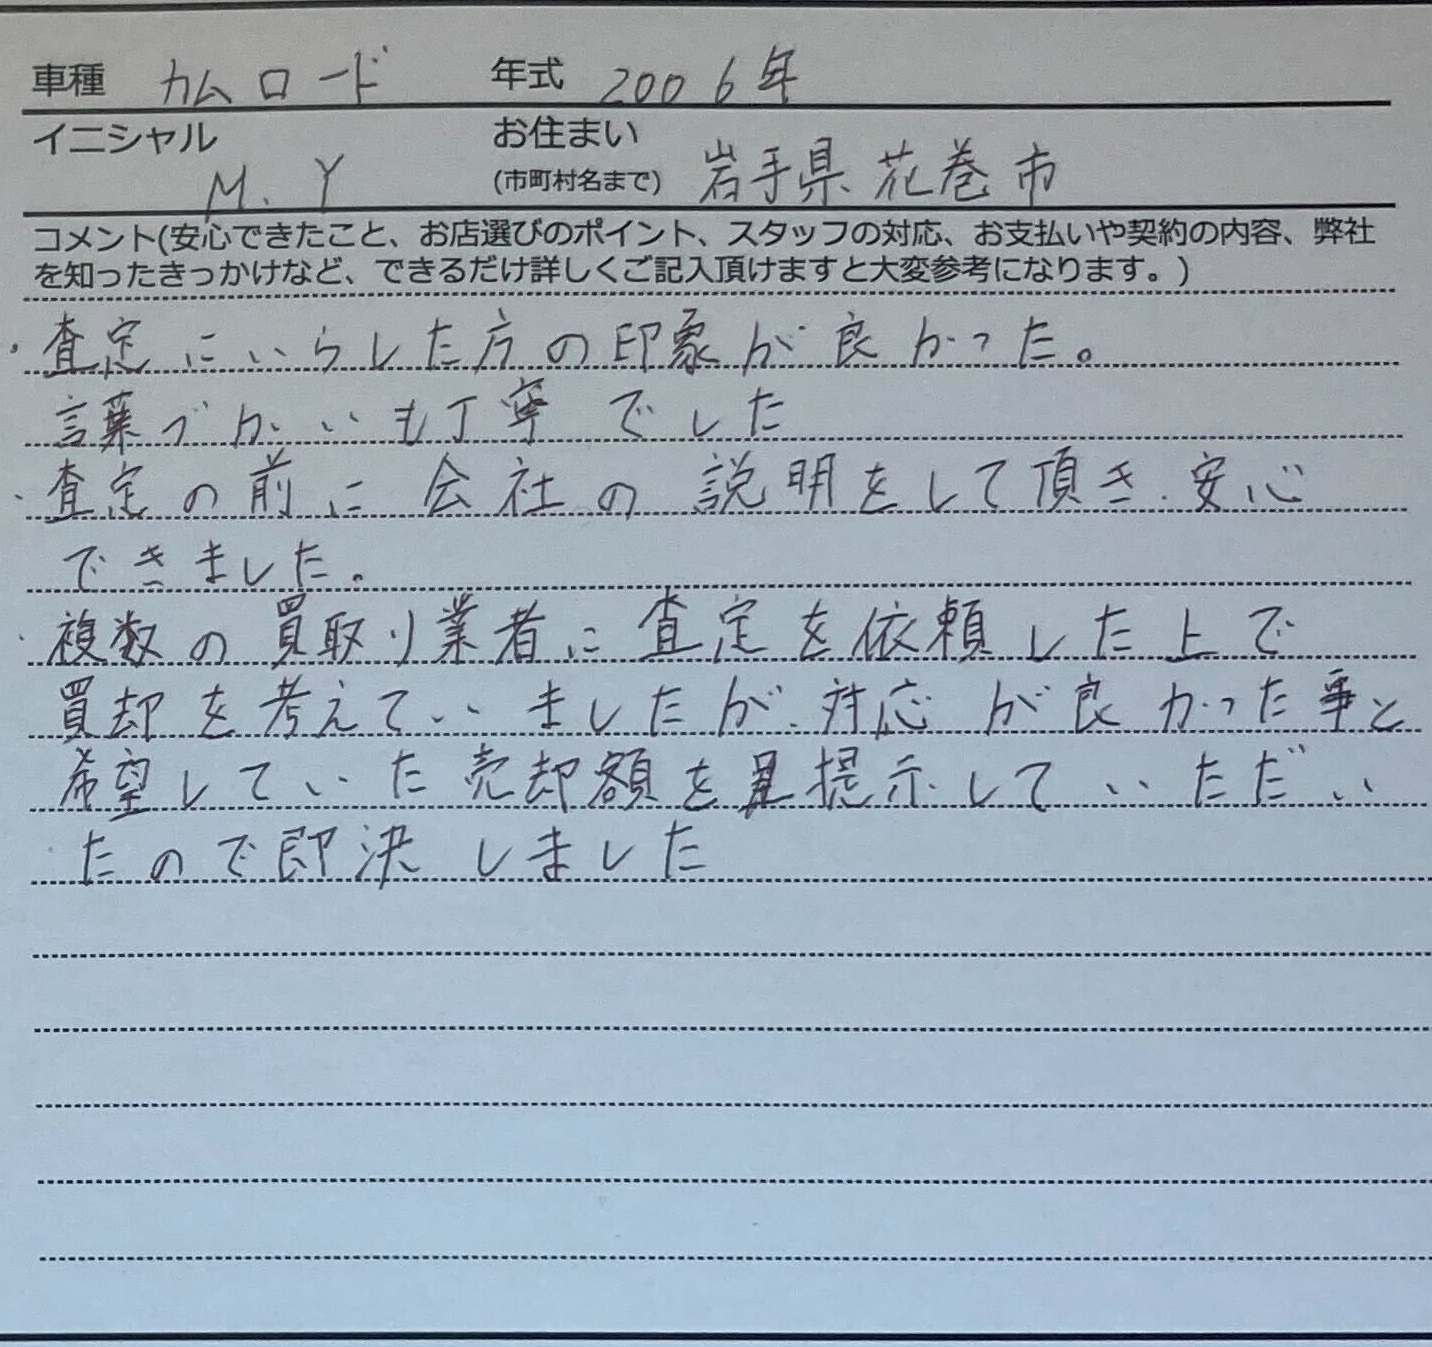 車種 カムロード 年式 2006年
イニシャル M.Y お住まい
(市町村名まで) 岩手県花巻市
コメント(安心できたこと、お店選びのポイント、スタッフの対応、お支払いや契約の内容、弊社
を知ったきっかけなど、できるだけ詳しくご記入頂けますと大変参考になります。)
・査定にいらした方の印象が良かった。
言葉づかいも丁寧でした
・査定の前に会社の説明をして頂き、安心
できました。
・複数の買取り業者に査定を依頼した上で
買却を考えていましたが、対応が良かった事と
希望していた売却額を提示していただい
たので即決しました